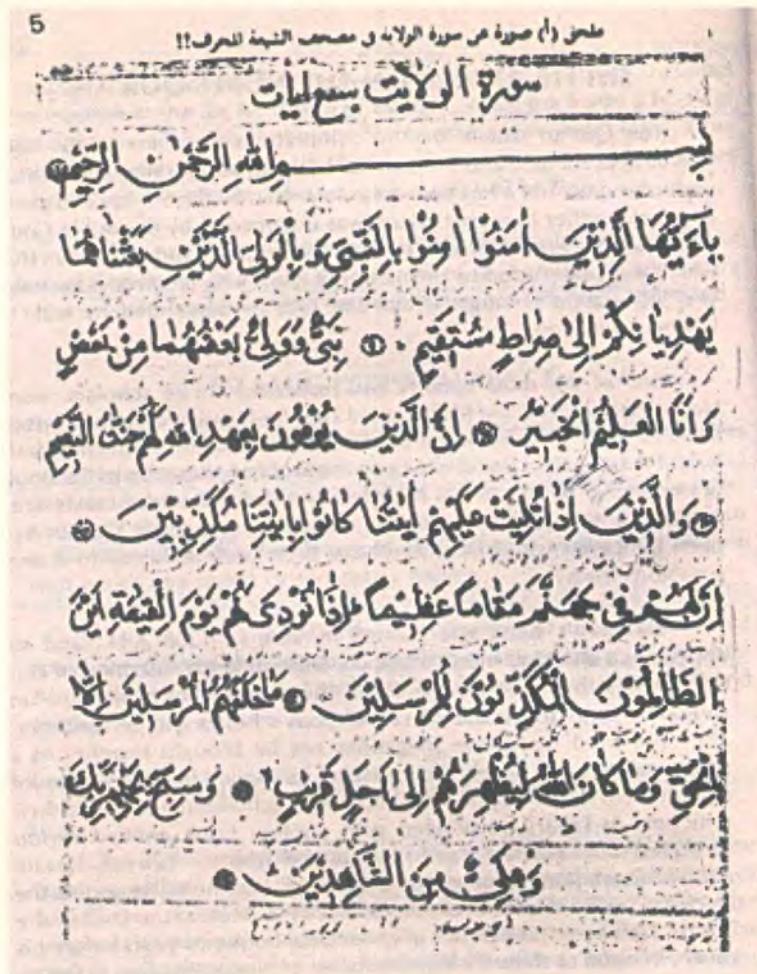 5
ملحق (أ) صورة عن سورة الولاية في مصحف الشيعة المحرف!!
سورة الولايت سبع ايات
بسم الله الرحمن الرحيم
ياۤءَيُّهَا الَّذِيْنَ اٰمَنُوْا اٰمِنُوْا بِالنَّبِيِّ وَبِالْوَلِيِّ الَّذَيْنِ بَعَثْنَاهُمَا
يَهْدِيَانِكُمْ اِلٰى صِرَاطٍ مُسْتَقِيْمٍ نَبِيٌّ وَوَلِيٌّ بَعْضُهُمَا مِنْ بَعْضٍ
وَاَنَا الْعَلِيْمُ الْخَبِيْرُ اِنَّ الَّذِيْنَ يُوْفُوْنَ بِعَهْدِ اللهِ لَهُمْ جَنّٰتُ النَّعِيْمِ
وَالَّذِيْنَ اِذَا تُلِيَتْ عَلَيْهِمْ اٰيٰتُنَا كَانُوْا بِاٰيٰتِنَا مُكَذِّبِيْنَ
اِنَّ لَهُمْ فِيْ جَهَنَّمَ مَقَامًا عَظِيْمًا اِذَا نُوْدِيَ لَهُمْ يَوْمَ الْقِيٰمَةِ اَيْنَ
الظَّالِمُوْنَ الْمُكَذِّبُوْنَ لِلْمُرْسَلِيْنَ مَا خَلَفَهُمُ الْمُرْسَلِيْنَ اِلَّا
بِالْحَقِّ وَمَا كَانَ اللهُ لِيُظْهِرَهُمْ اِلٰى اَجَلٍ قَرِيْبٍ وَسَبِّحْ بِحَمْدِ رَبِّكَ
وَعَلِيٌّ مِنَ الشَّاهِدِيْنَ